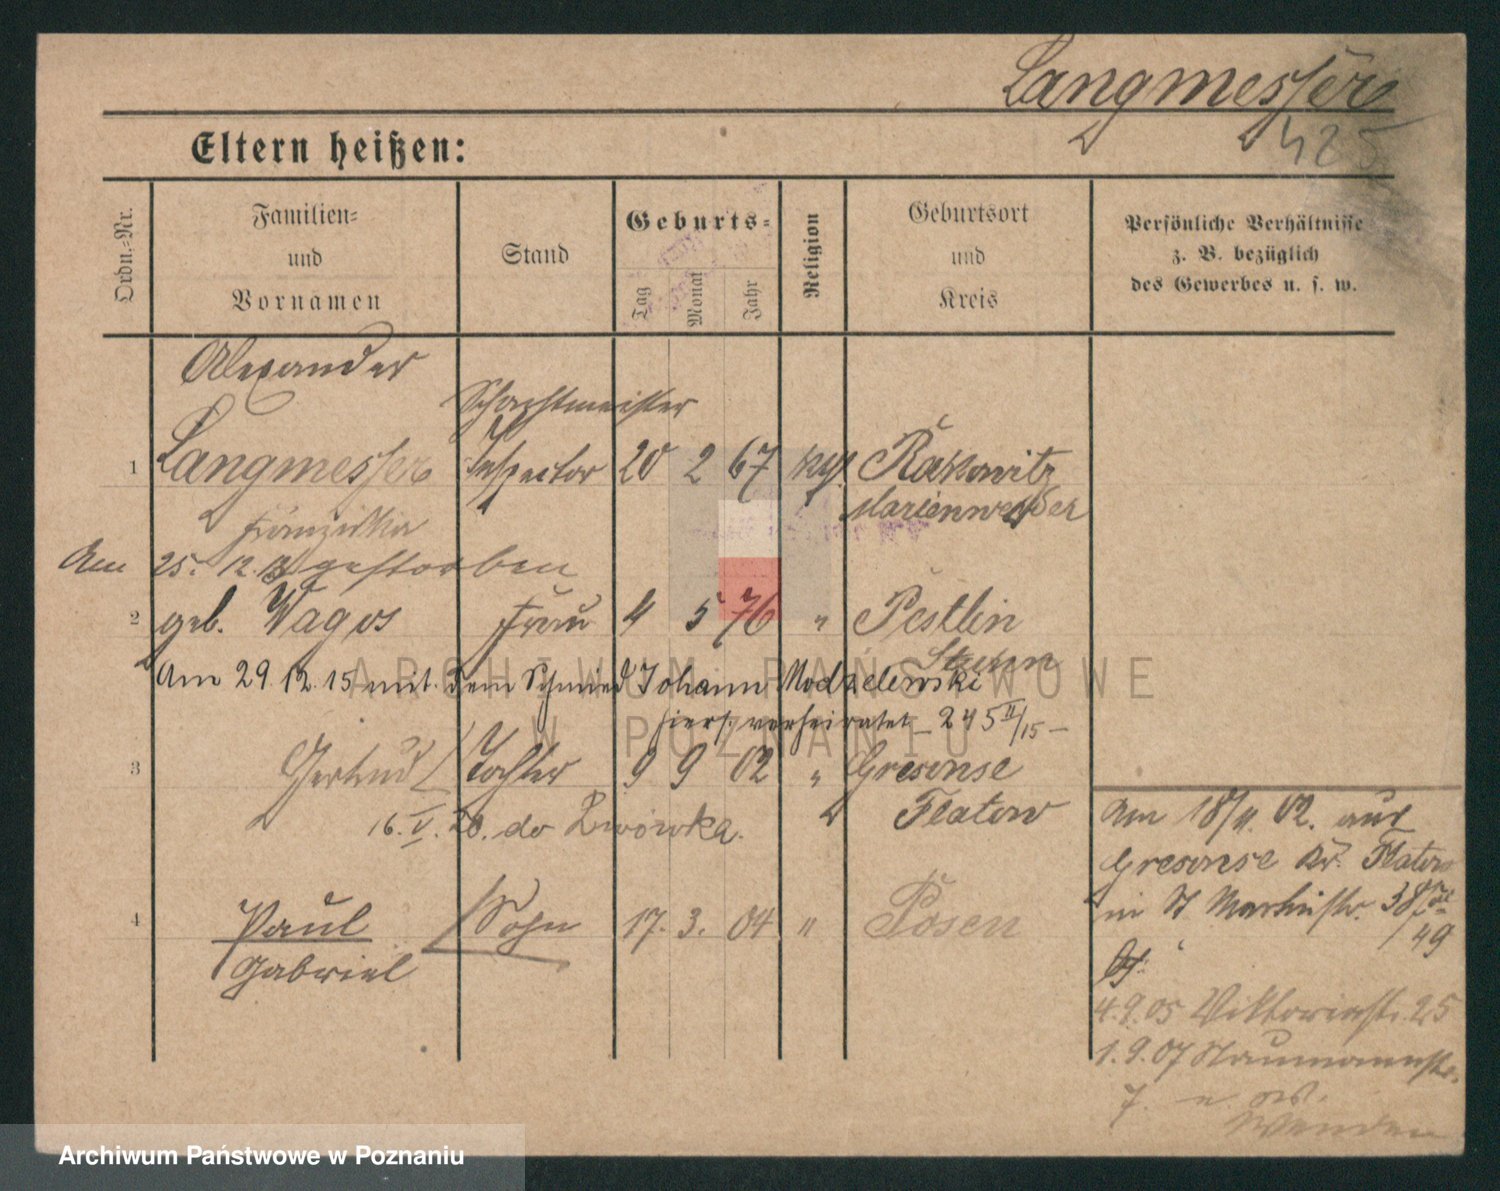 Langmesser
425
Eltern heißen:
Ordn.-Nr.
Familien-
und
Vornamen
Stand
Geburts-
Tag
Monat
Jahr
Religion
Geburtsort
und
Kreis
Persönliche Verhältnisse
z. B. bezüglich
des Gewerbes u. s. w.
Alexander
Schachtmeister
1 Langmesser Inspector 20 2 67 Rakowitz
Marienwerder
Franziska
Am 25. 12. gestorben
2 geb. Wagos Frau 4 5 76 " Pestlin
Stuhm
Am 29. 12. 15 mit dem Schmied Johann Modzelewski
hiers. verheiratet – 245 II/15 –
3 Gertrud Tochter 9 9 02 " Gresonse
Flatow
16. V. 20. do Lwówka.
4 Paul Sohn 17. 3. 04 " Posen
Gabriel
Am 18/11. 02. aus
Gresonse Kr. Flatow
in St Martinstr. 38
49
4.9.05 Viktoriastr. 25
1.9.07 Naumannstr.
7.
ARCHIWUM PAŃSTWOWE
W POZNANIU
Archiwum Państwowe w Poznaniu